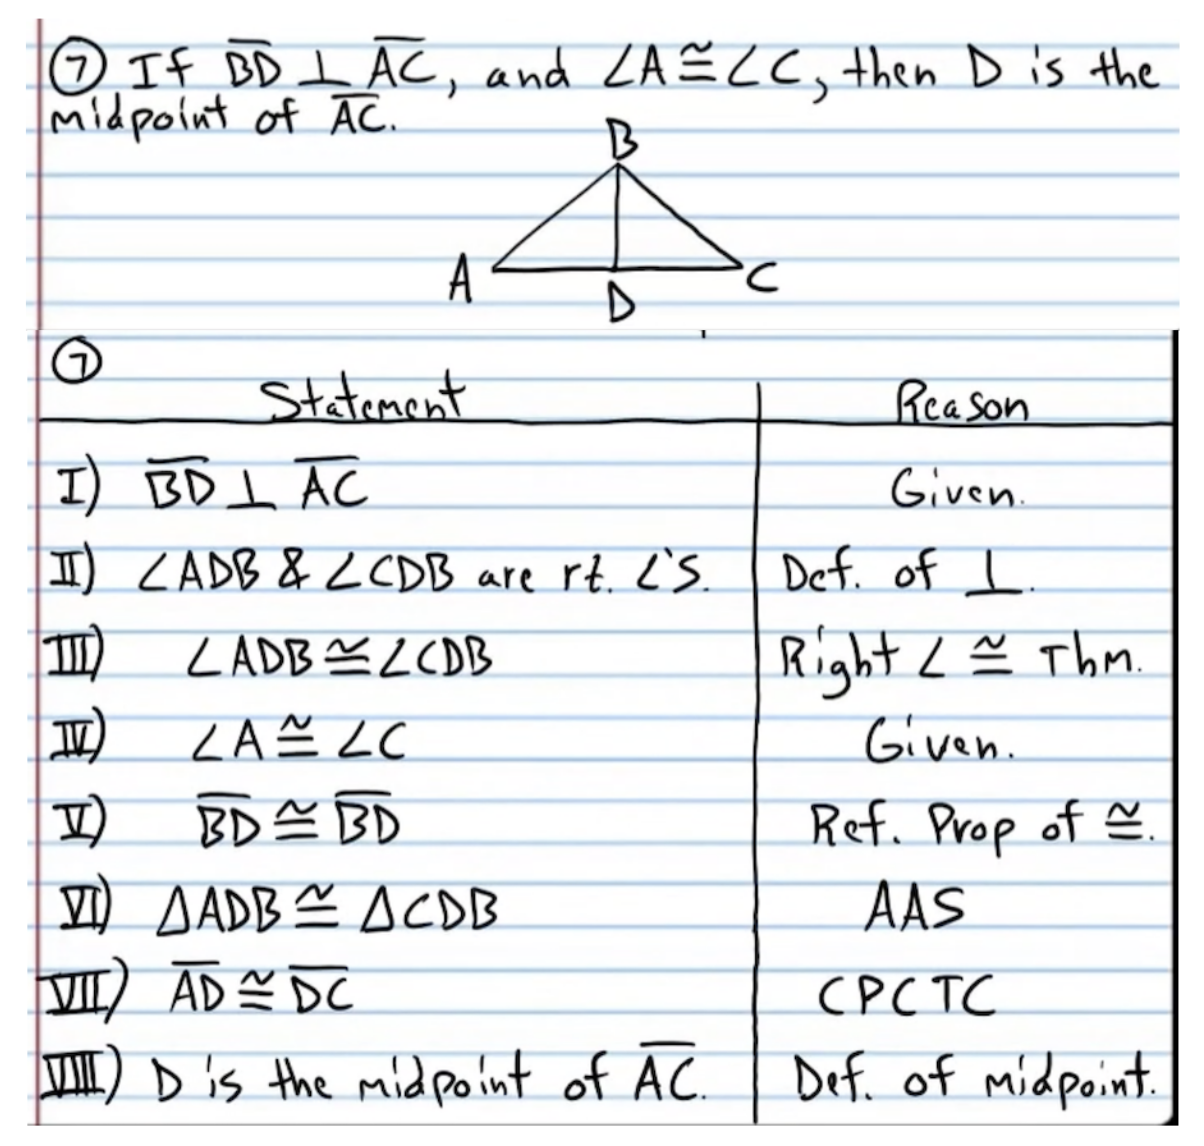 ⑦ If B̅D̅ ⊥ A̅C̅, and ∠A≅∠C, then D is the
midpoint of A̅C̅.
B
A
C
D
⑦
Statement Reason
I) B̅D̅ ⊥ A̅C̅ Given.
II) ∠ADB & ∠CDB are rt. ∠'s. Def. of ⊥.
III) ∠ADB≅∠CDB Right ∠ ≅ Thm.
IV) ∠A≅∠C Given.
V) B̅D̅≅B̅D̅ Ref. Prop of ≅.
VI) ΔADB≅ΔCDB AAS
VII) A̅D̅≅D̅C̅ CPCTC
VIII) D is the midpoint of A̅C̅. Def. of midpoint.